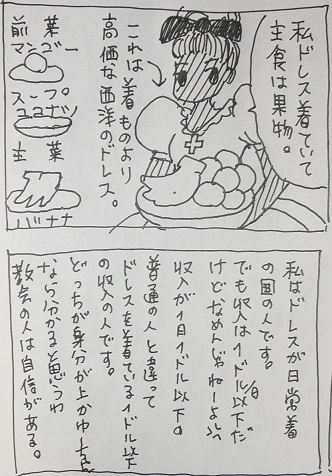 私ドレス着ていて
主食は果物。
これは着ものより
高価な西洋のドレス。
前菜
マンゴー
スープ
ココナツ
主菜
バナナ
私はドレスが日常着
の国の人です。
でも収入は1ドル/日だ
けどなめんじゃねーよ
収入が1日1ドル以下。
普通の人と違って
ドレスを着ている1ドル以下
の収入の人です。
どっちが身分が上かゆー
なら分かると思うわ
教会の人は自信がある。